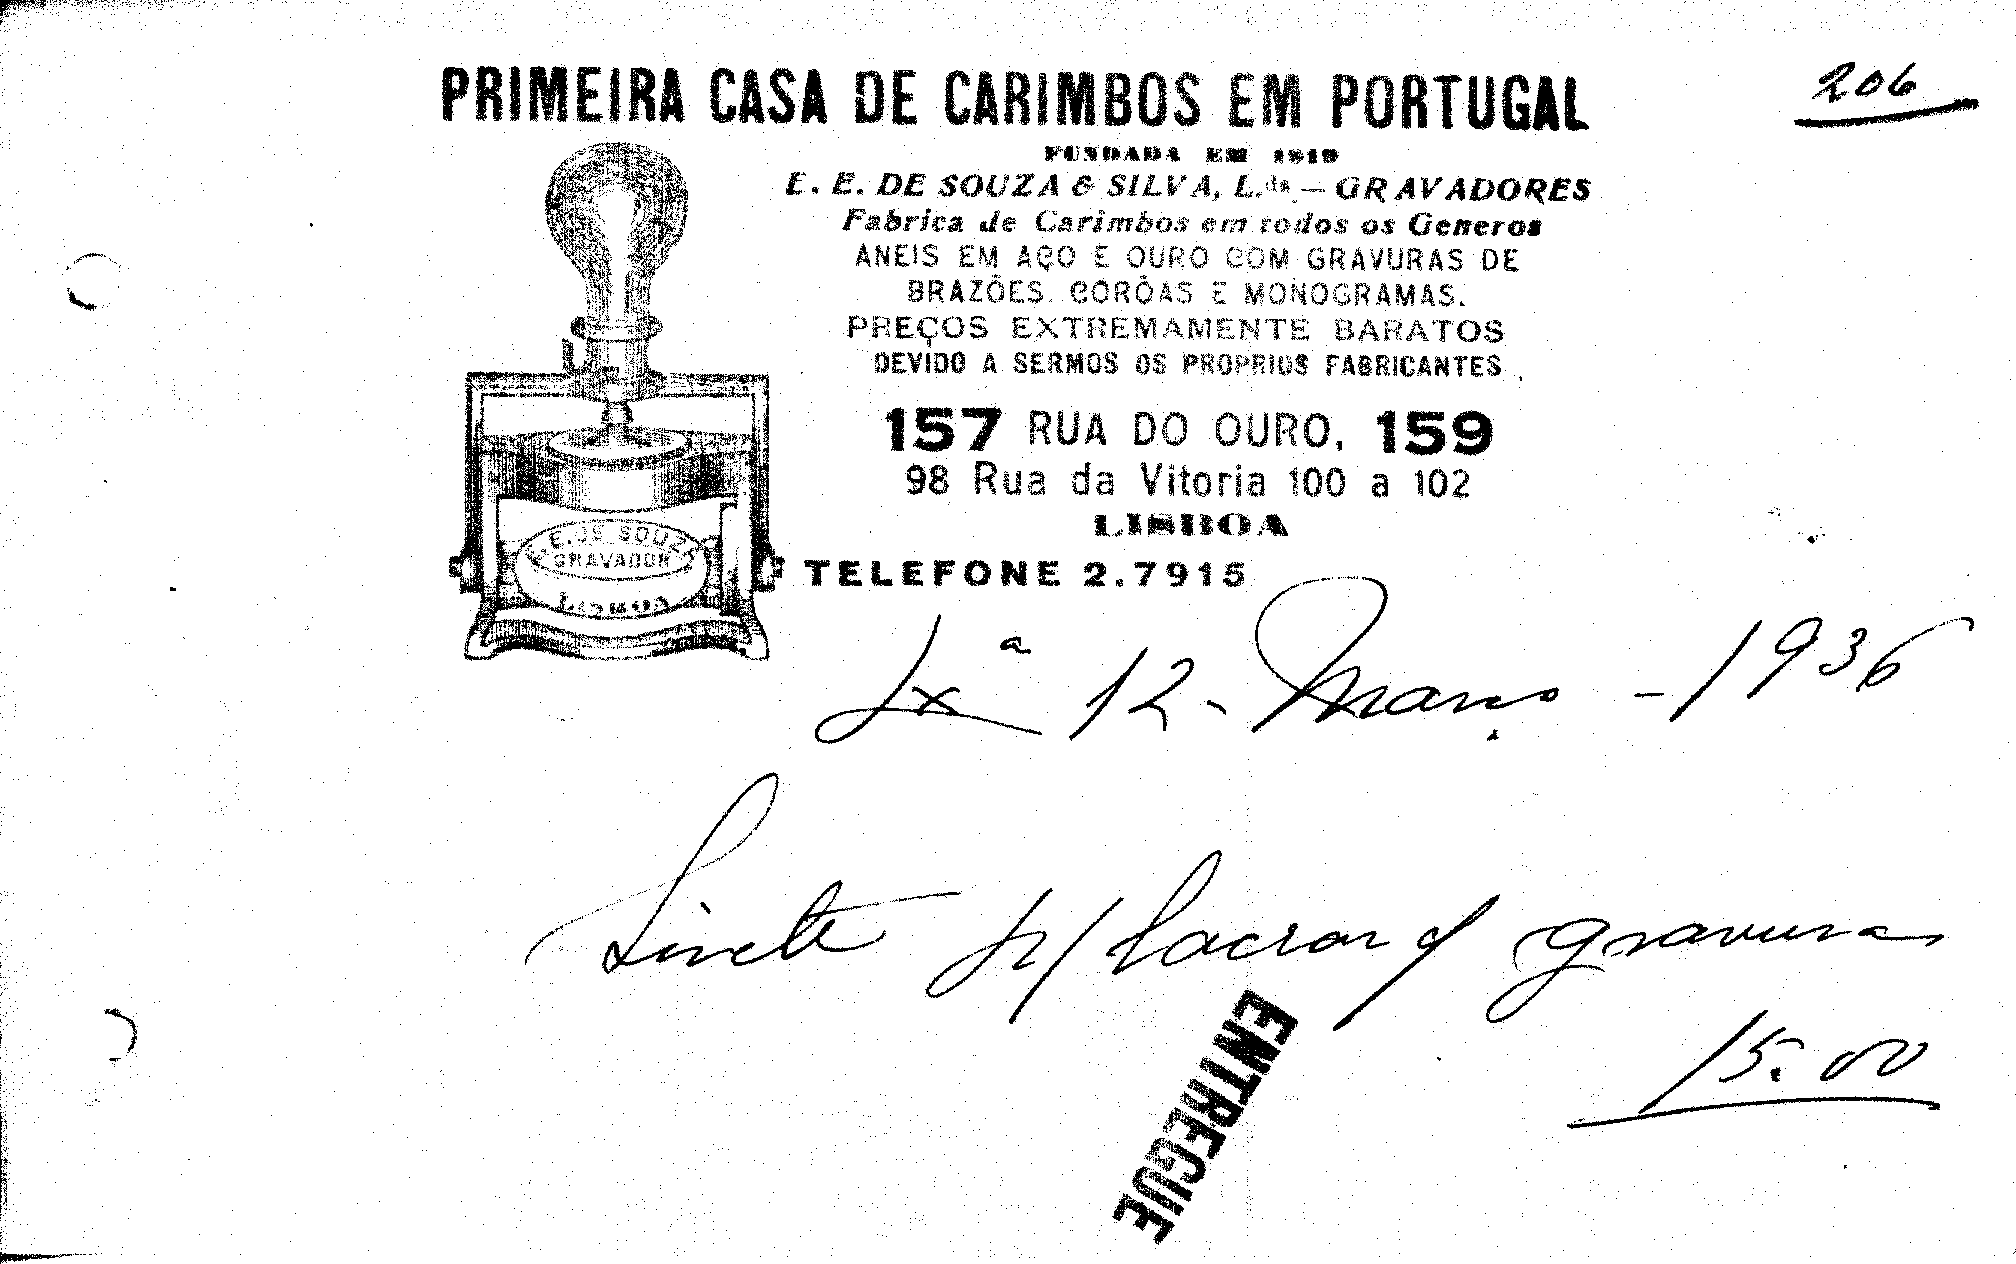 206
PRIMEIRA CASA DE CARIMBOS EM PORTUGAL
FUNDADA EM 1819
E. E. DE SOUZA & SILVA, L.da — GRAVADORES
Fabrica de Carimbos em todos os Generos
ANEIS EM AÇO E OURO COM GRAVURAS DE
BRAZÕES, CORÔAS E MONOGRAMAS.
PREÇOS EXTREMAMENTE BARATOS
DEVIDO A SERMOS OS PROPRIOS FABRICANTES
157 RUA DO OURO, 159
98 Rua da Vitoria 100 a 102
LISBOA
E. E. DE SOUZA
GRAVADOR
LISBOA
TELEFONE 2.7915
Lxª 12 - Março - 1936
Sinete p/ lacrar c/ gravura
15.00
ENTREGUE